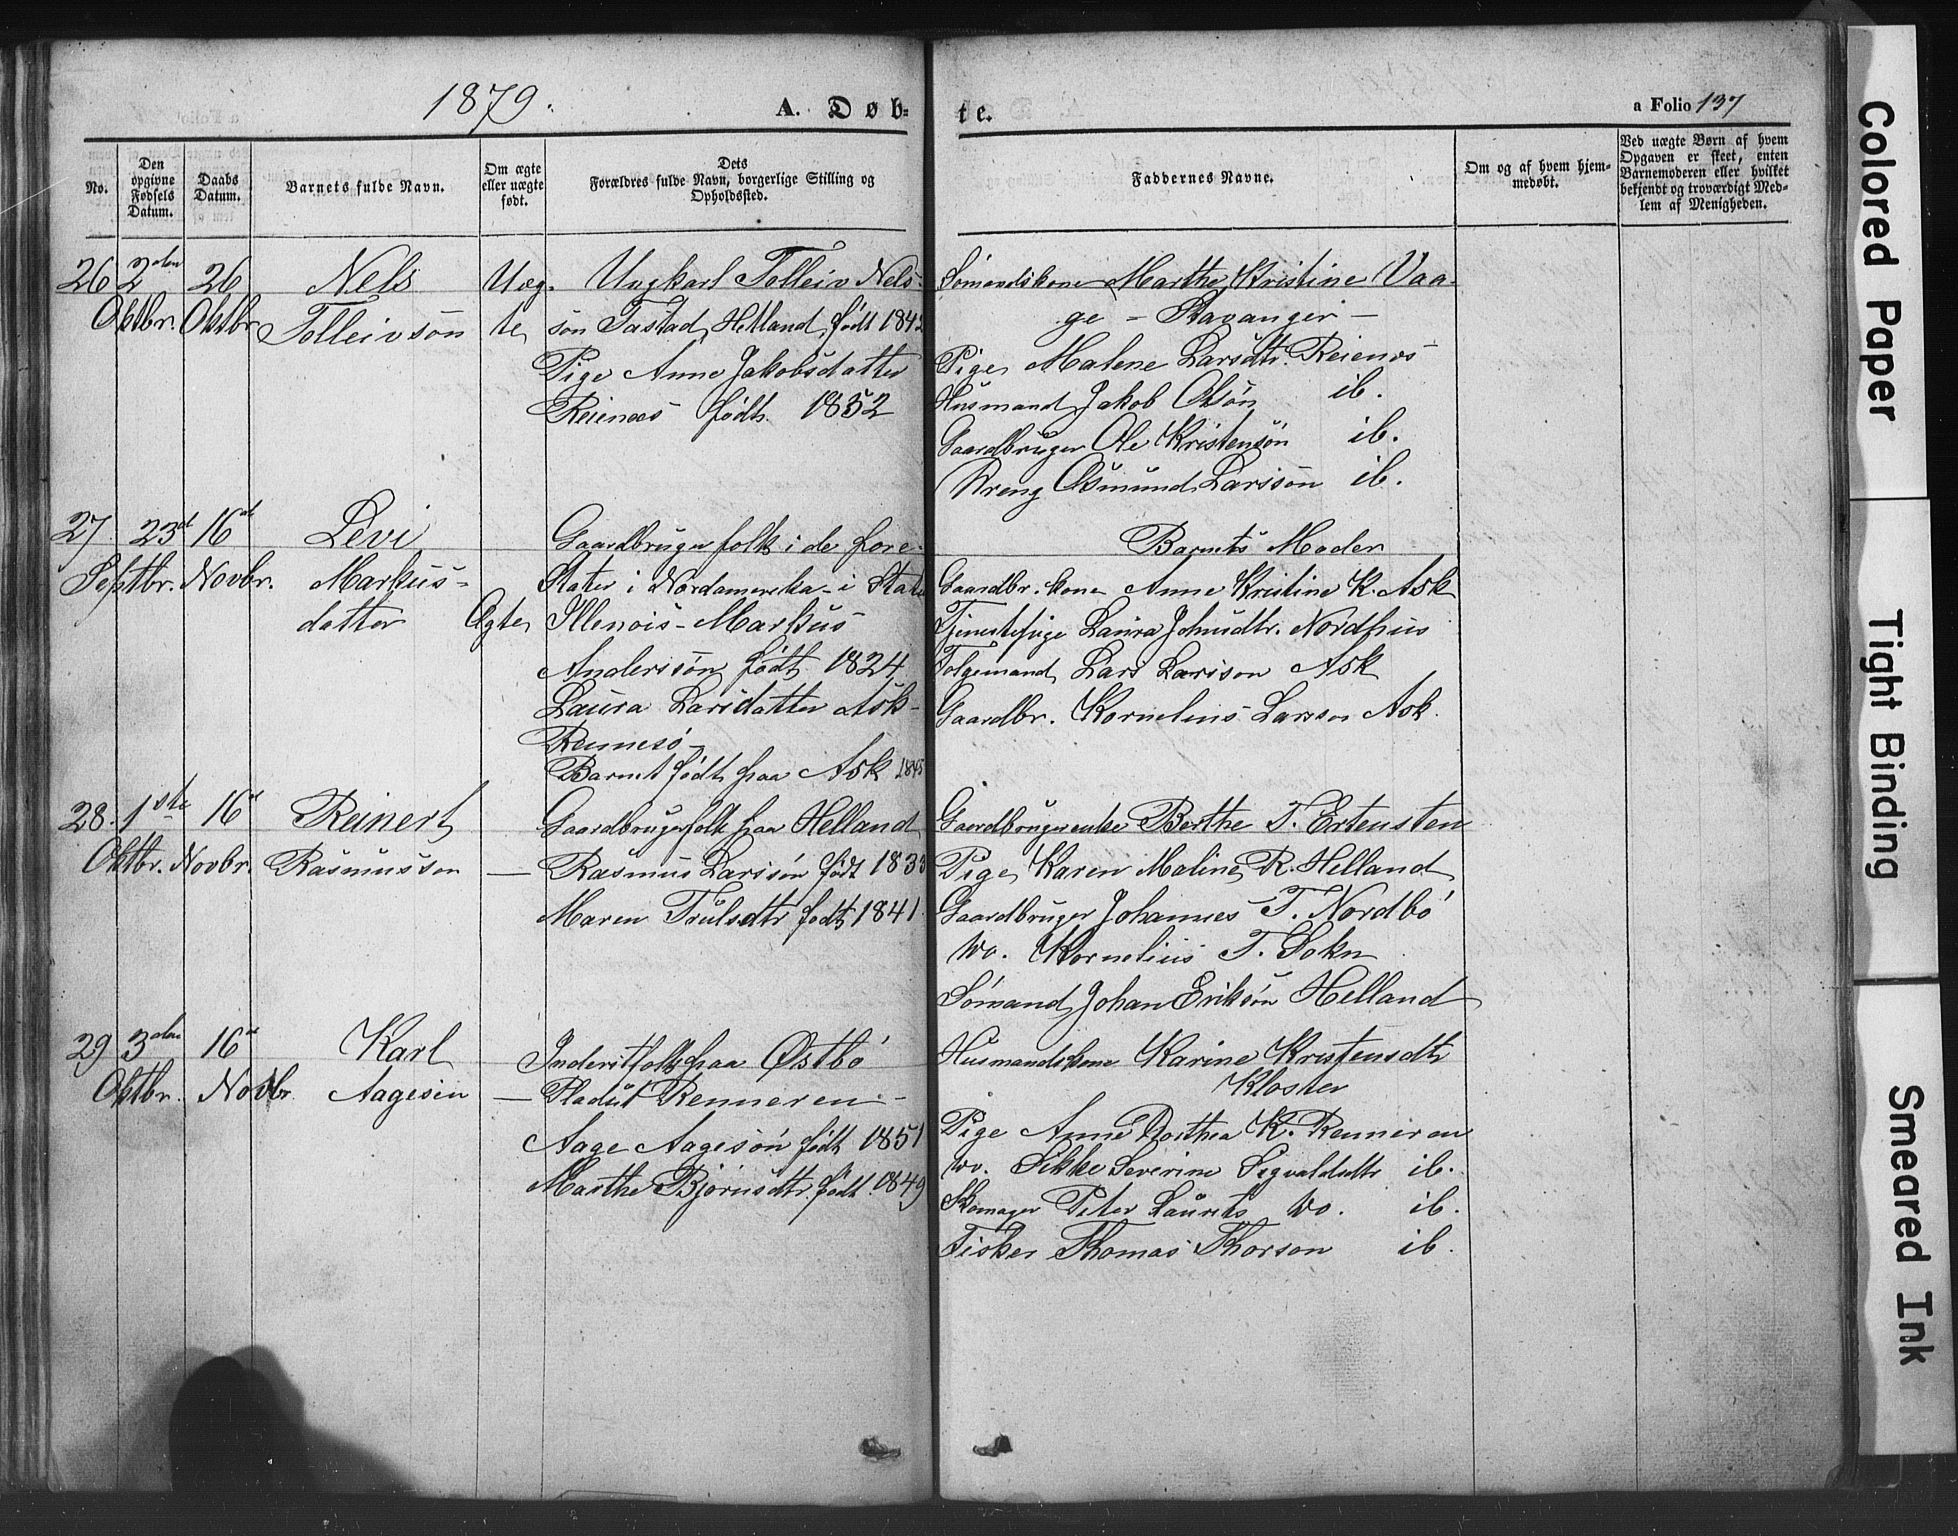 1879.
A. Døb-
te.
a Folio 137
No.
Den
opgivne
Fødsels
Datum.
Daabs
Datum.
Barnets fulde Navn.
Om ægte
eller uægte
født.
Dets
Forældres fulde Navn, borgerlige Stilling og
Opholdssted.
Faddernes Navne.
Om og af hvem hjem-
medøbt.
Ved uægte Børn af hvem
Opgaven er skeet, enten
Barnemoderen eller hvilket
bekjendt og troværdigt Med-
lem af Menigheden.
26 2den Oktbr.
26 Oktbr
Nels
Tolleivsön
Uæg-
te
Ungkarl Tolleiv Nels-
sön Tastad, Hetland, födt 1842
Pige Anne Jakobsdatter
Reienæs födt 1852
Sömandskone Marthe Kristine Vaa-
ge - Stavanger -
Pige Malene Larsdtr. Reienæs
Husmand Jakob Olsön ib.
Gaardbruger Ole Kristensön ib.
Dreng Osmund Larssön ib.
27 23d Septbr.
16de Novbr.
Levi
Markus-
datter
Ægte
Gaardbrugerfolk i de fore-
Stater i Nordamerika - i Stat
Illenois - Markus
Anderssön födt 1824
Laura Larsdatter Ask -
Rennesö -
Barnet födt paa Ask 1845
Barnets Moder
Gaardbr. kone Anne Kristine K. Ask
Tjenestepige Laura Johnsdtr. Nordhus
Folgemand Lars Larsson Ask
Gaardbr. Kornelius Larsson Ask.
28. 1ste Oktbr.
16de Novbr.
Reinert
Rasmusson
—
Gaardbrugerfolk paa Helland
Rasmus Larssön födt 1833
Maren Trulsdtr födt 1841.
Gaardbrugerenke Berthe T. Ertensten
Pige Karen Maline R. Helland
Gaardbruger Johannes T. Nordbö
Do. Kornelius T. Sokn
Sömand Johan Eriksön Helland
29 3den Oktbr.
16de Novbr.
Karl
Aagesön
—
Inderstfolk paa Østbö
Pladsut Renneren -
Aage Aagesön födt 1851
Marthe Björnsdtr. födt 1849
Husmandskone Karine Kristensdtr
Kloster
Pige Anne Dorthea K. Renneren
Do. Sikke Severine Sigvaldsdtr ib.
Skomager Peter Laurits Do. ib.
Fisker Thomas Thorson ib.
Colored Paper
Tight Binding
Smeared Ink